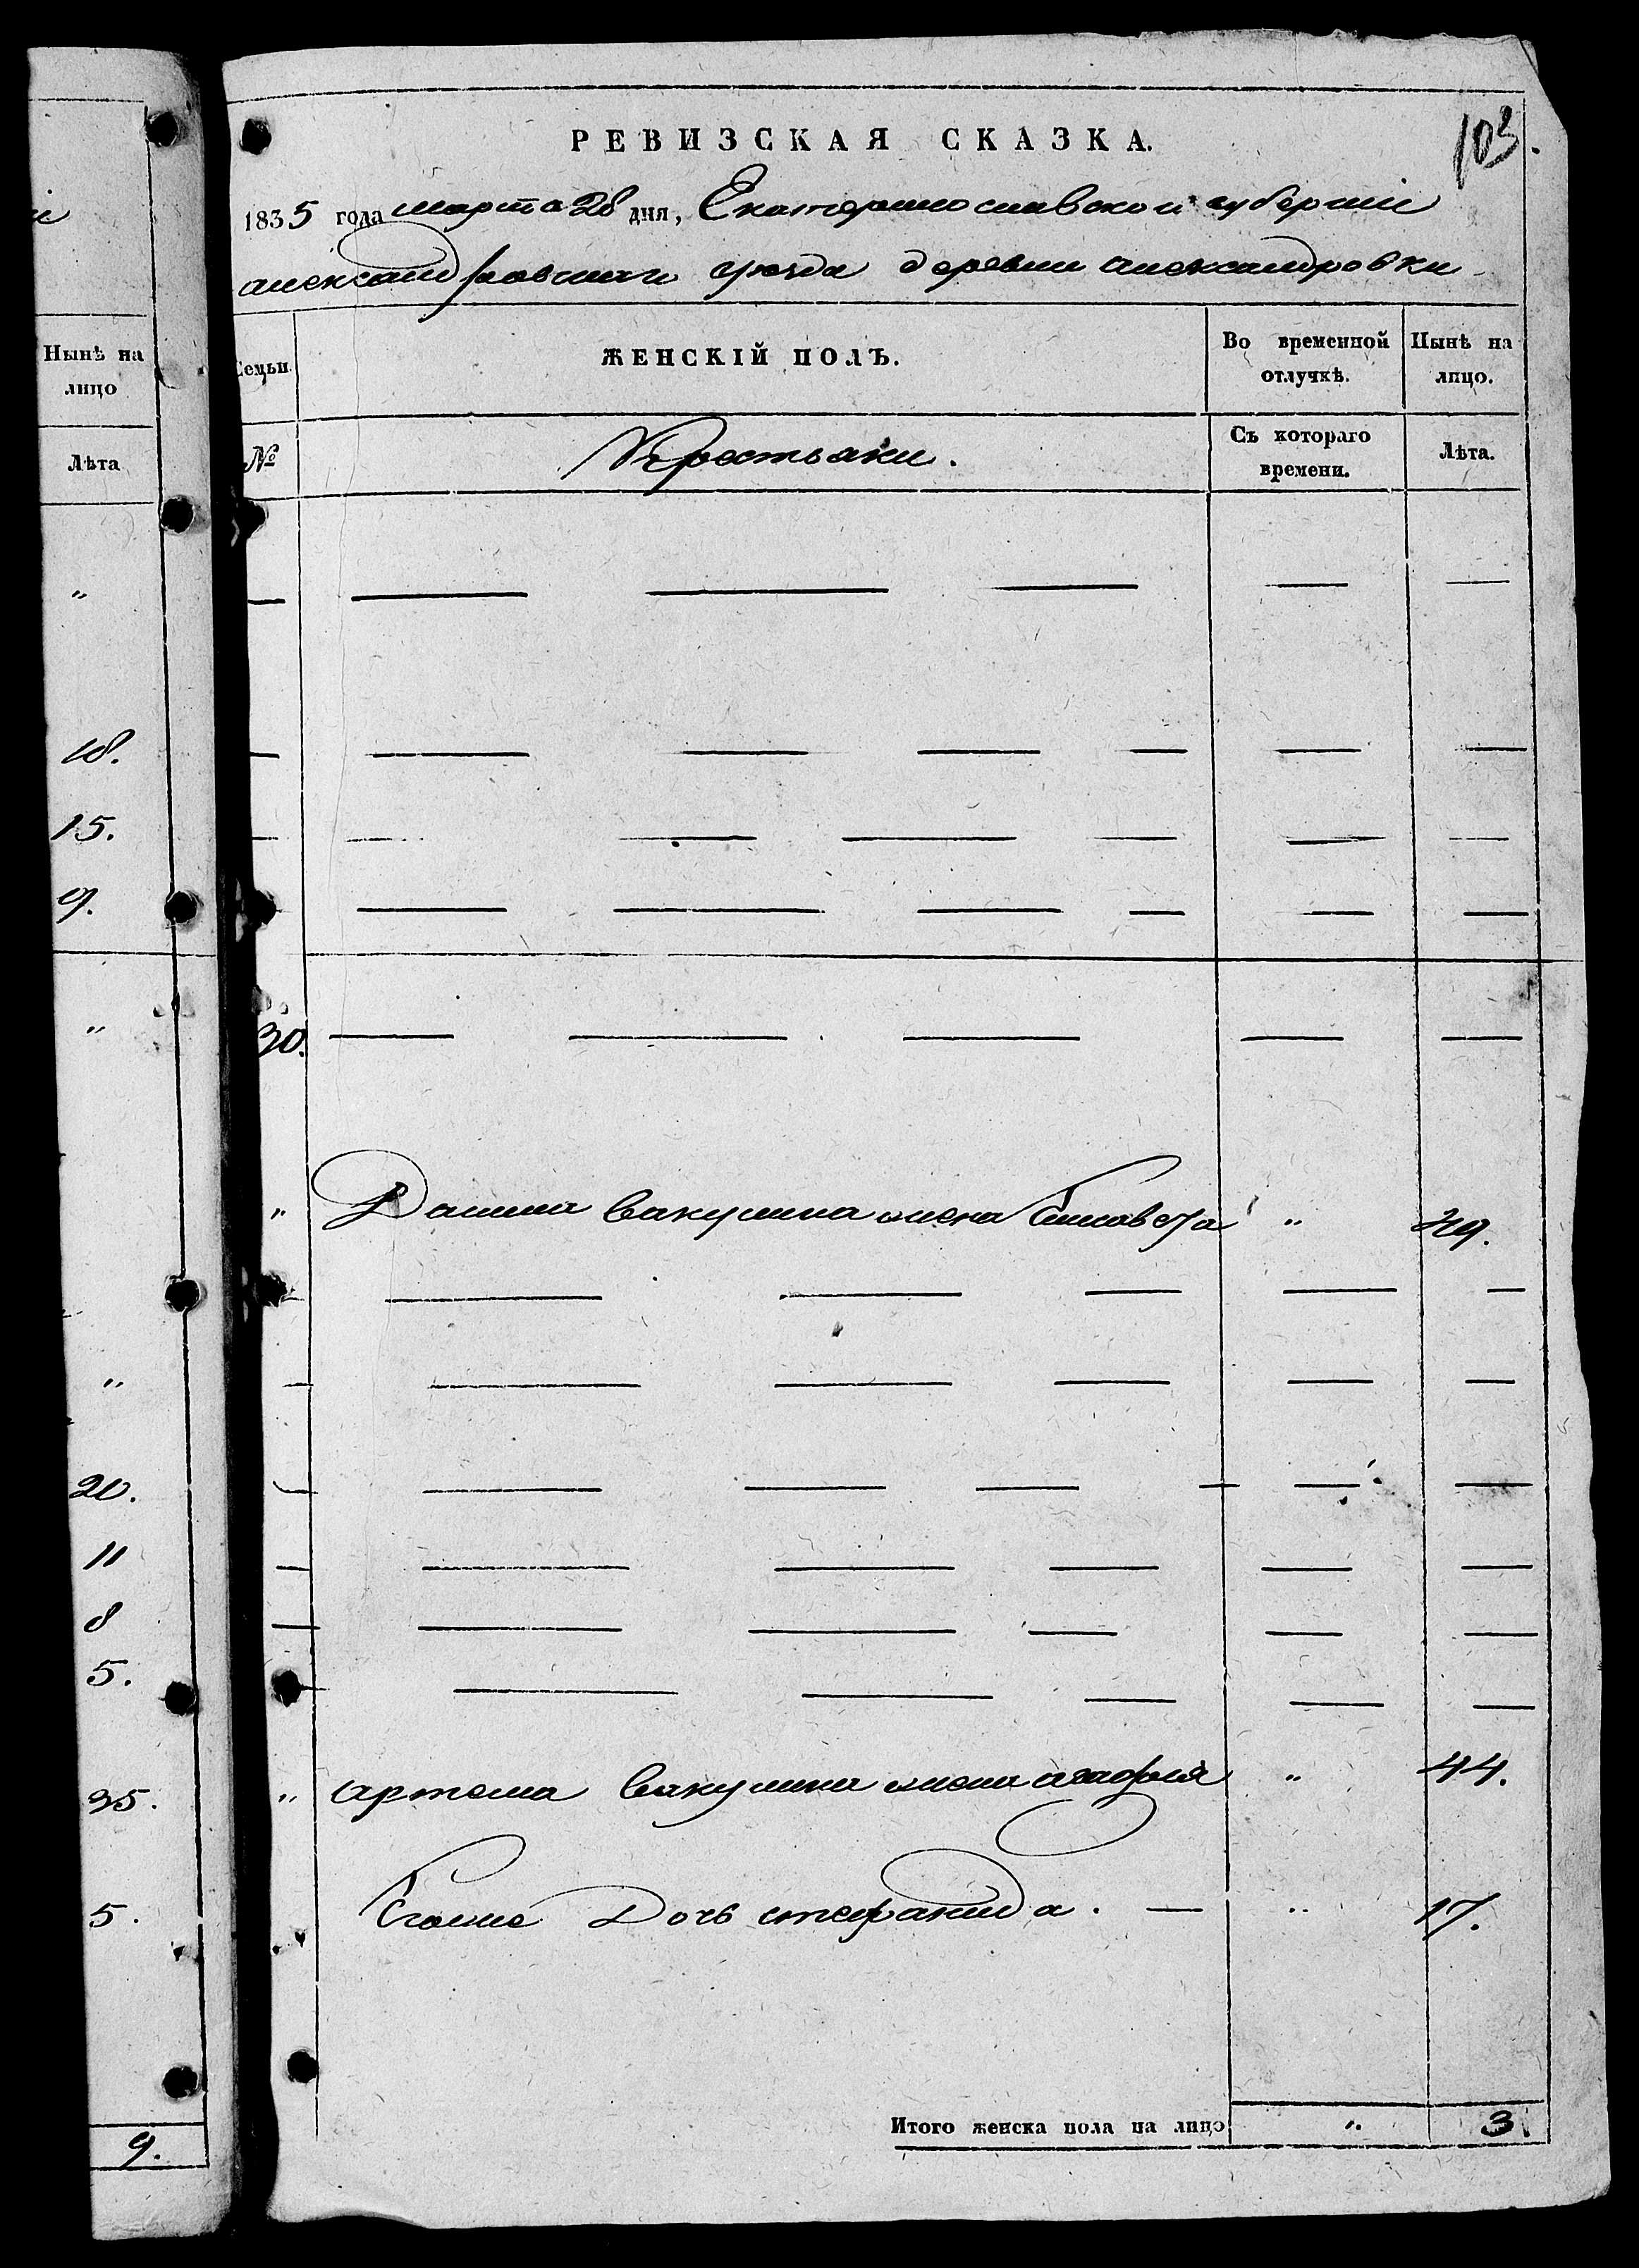 103.
РЕВИЗСКАЯ СКАЗКА.
1835 года марта 28 дня, Екатеринославской губернiи
александровскаго уѣзда деревни александровки
Нынѣ на лицо
Лѣта
Семьи.
ЖЕНСКIЙ ПОЛЪ.
Во временной отлучкѣ.
Нынѣ на лицо.
№
Крестьяки.
Съ котораго времени.
Лѣта.
"
18.
15.
9.
"
30.
" Данила Вакулина жена Елисавета " 49.
"
20.
11
8
5.
35.
" артема Вакулина жена агафья " 44.
5.
Егоже Дочь стефанида. — " 17.
Итого женска пола на лицо " 3
9.